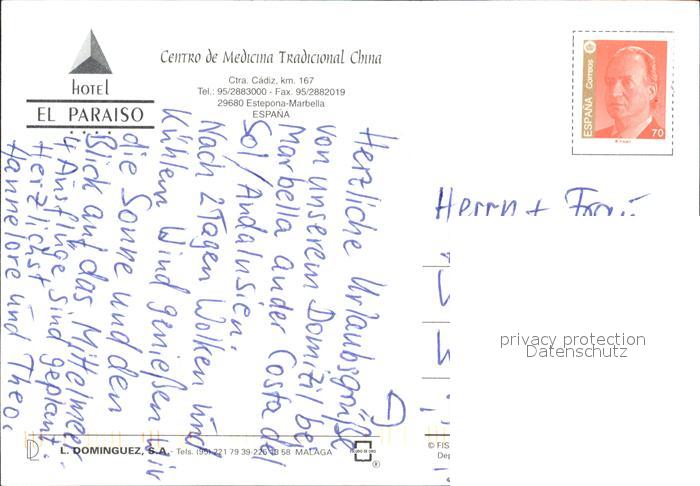 HOTEL
EL PARAISO
Centro de Medicina Tradicional China
Ctra. Cádiz, km. 167
Tel.: 95/2883000 - Fax. 95/2882019
29680 Estepona-Marbella
ESPAÑA
ESPAÑA Correos
70
Herrn + Frau
Herzliche Urlaubsgrüße
von unserem Domizil bei
Marbella an der Costa del
Sol/Andalusien.
Nach 2 Tagen Wolken und
Kühlem Wind genießen wir
die Sonne und den
Blick auf das Mittelmeer.
4 Ausflüge sind geplant.
Herzlichst
Hannelore und Theo.
privacy protection
Datenschutz
L. DOMINGUEZ, S.A. - Tels. (95) 221 79 39-226 18 58 MALAGA
ESCUDO DE ORO
®
© FIS
Dep